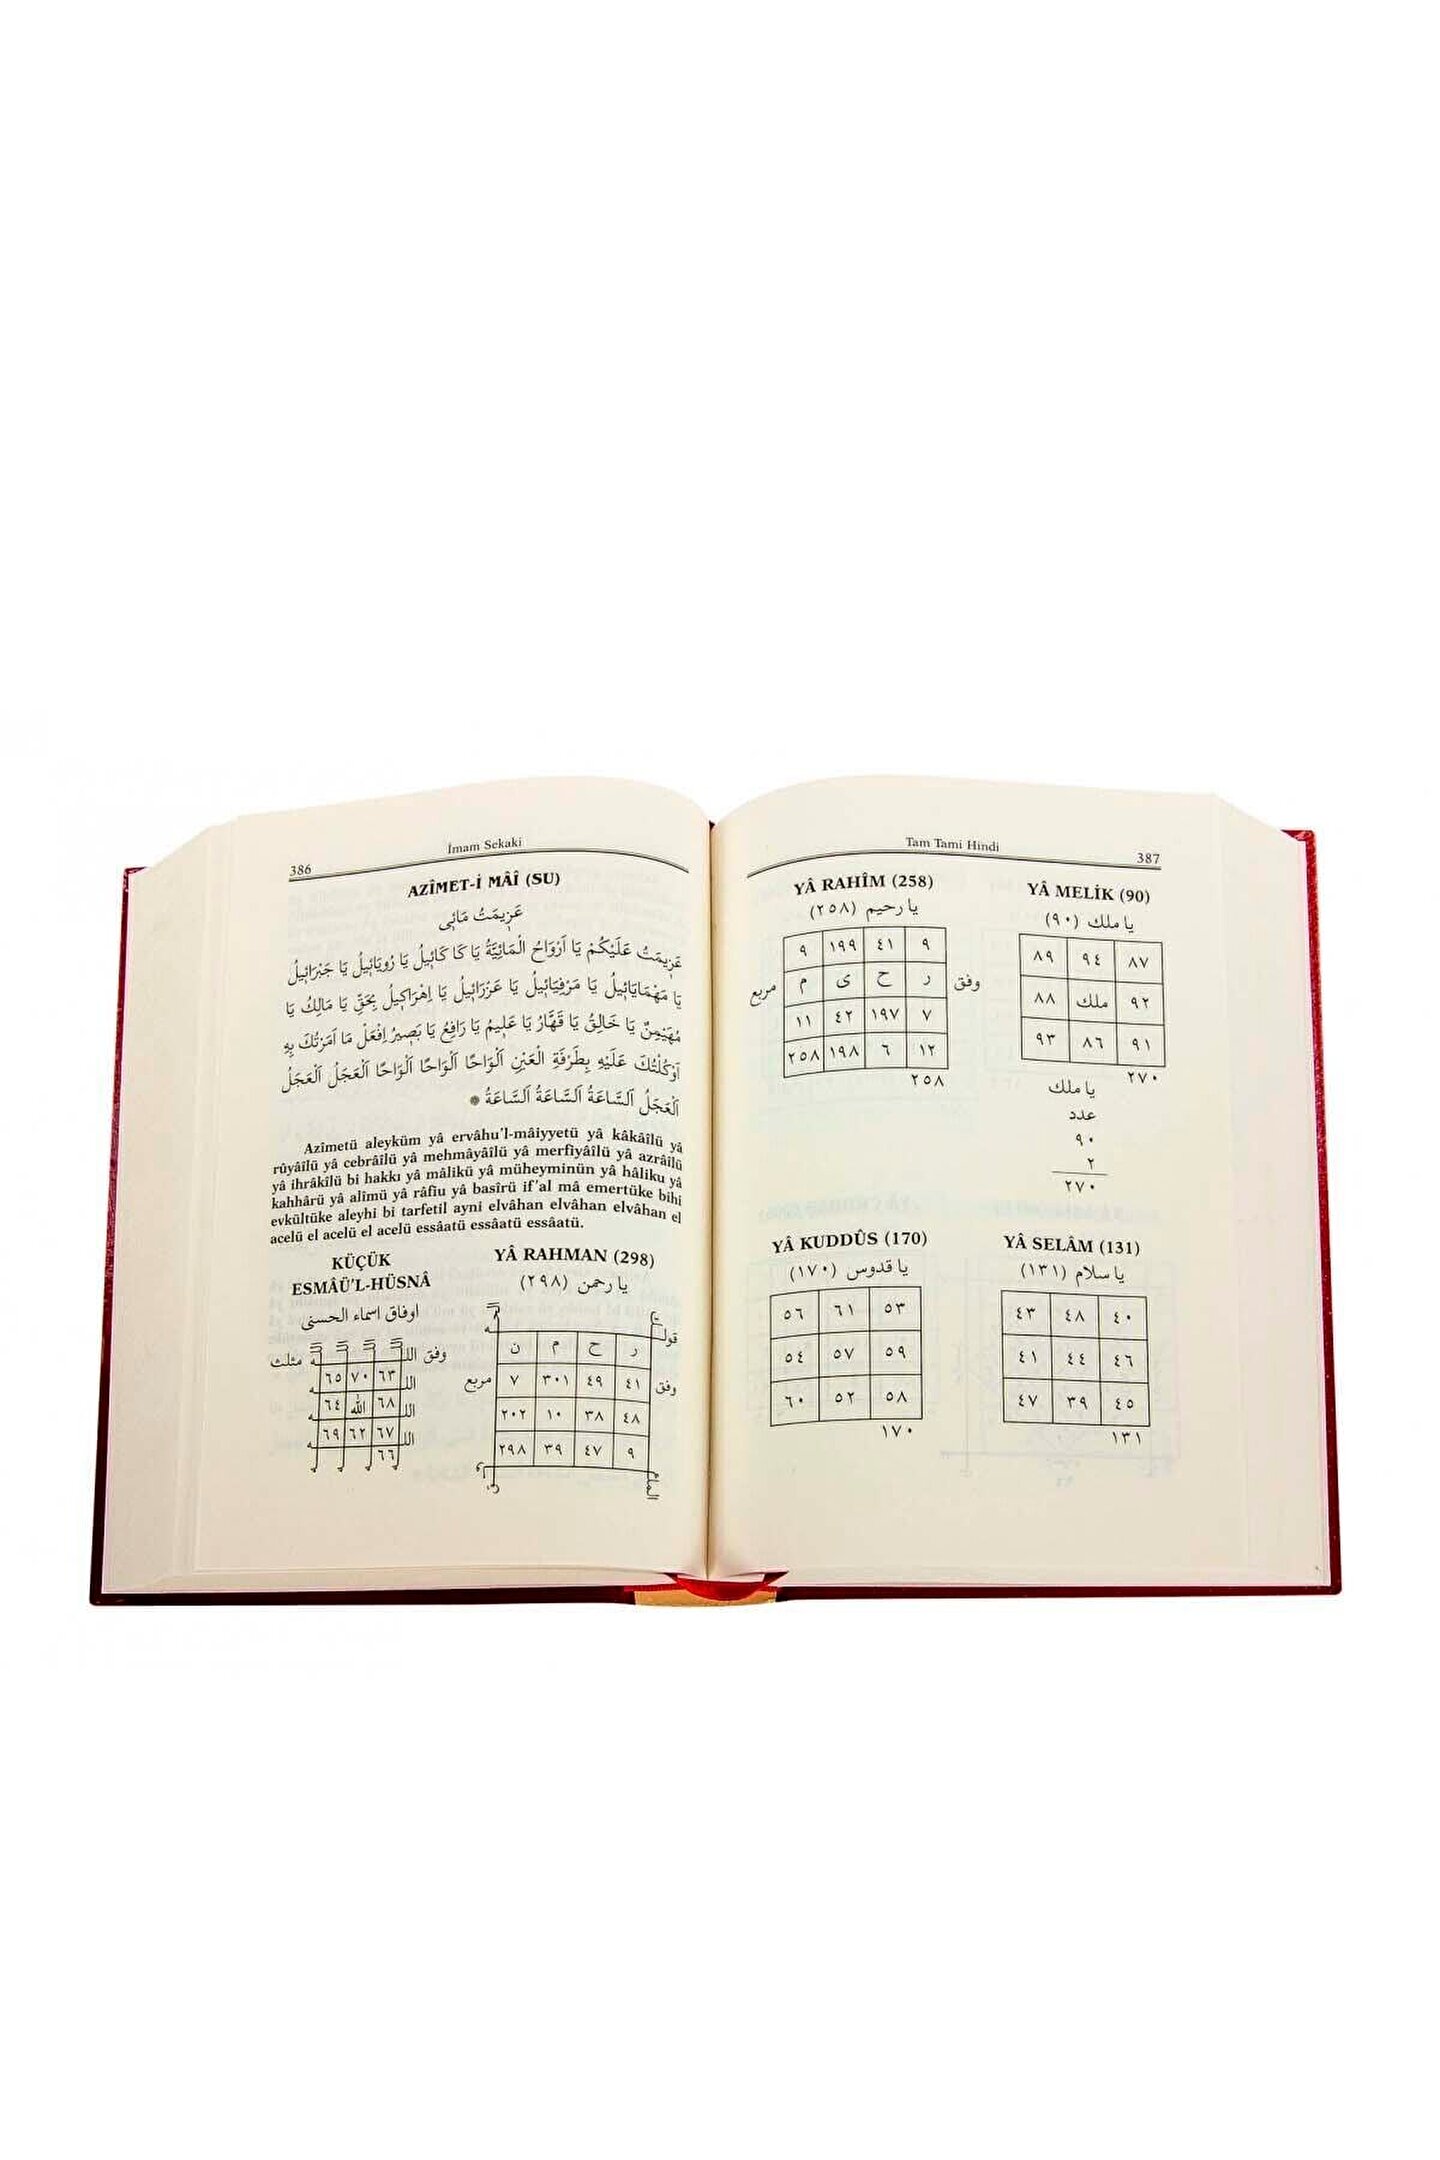 386
İmam Sekaki
AZÎMET-İ MÂÎ (SU)
عَزِيمَتُ مَائِى
عَزِيمَتُ عَلَيْكُمْ يَا اَرْوَاحُ الْمَائِيَّةُ يَا كَا كَائِيلُ يَا رُويَائِيلُ يَا جَبْرَائِيلُ
يَا مَهْمَايَائِيلُ يَا مَرْفِيَائِيلُ يَا عَزْرَائِيلُ يَا اِهْرَاكِيلُ بِحَقِّ يَا مَالِكُ يَا
مُهَيْمِنٌ يَا خَالِقُ يَا قَهَّارُ يَا عَلِيمُ يَا رَافِعُ يَا بَصِيرُ اِفْعَلْ مَا اَمَرْتُكَ بِهِ
اَوْكَلْتُكَ عَلَيْهِ بِطَرْفَةِ الْعَيْنِ اَلْوَاحًا اَلْوَاحًا اَلْوَاحًا اَلْعَجَلُ اَلْعَجَلُ
اَلْعَجَلُ اَلسَّاعَةُ اَلسَّاعَةُ اَلسَّاعَةُ
Azîmetü aleyküm yâ ervâhu’l-mâiyyetü yâ kâkâîlü yâ
rûyâîlü yâ cebrâîlü yâ mehmâyâîlü yâ merfiyâîlü yâ azrâîlü
yâ ihrâkîlü bi hakkı yâ mâlikü yâ müheyminün yâ hâliku yâ
kahhârü yâ alîmü yâ râfiu yâ basîrü if’al mâ emertüke bihi
evkültüke aleyhi bi tarfetil ayni elvâhan elvâhan elvâhan el
acelü el acelü el acelü essâatü essâatü essâatü.
KÜÇÜK
ESMÂÜ’L-HÜSNÂ
اوفاق اسماء الحسنى
وفق مثلث
٦٥ ٧٠ ٦٣
٦٤ الله ٦٨
٦٩ ٦٢ ٦٧
٦٦
YÂ RAHMAN (298)
يا رحمن (٢٩٨)
قوله
ن م ح ر
وفق مربع
٧ ٣٠١ ٤٩ ٤١
٢٠٢ ١٠ ٣٨ ٤٨
٢٩٨ ٣٩ ٤٧ ٩
Tam Tami Hindi
387
YÂ RAHÎM (258)
يا رحيم (٢٥٨)
٩ ١٩٩ ٤١ ٩
م ى ح ر
وفق مربع
١١ ٤٢ ١٩٧ ٧
٢٥٨ ١٩٨ ٦ ١٢
٢٥٨
YÂ MELİK (90)
يا ملك (٩٠)
٨٩ ٩٤ ٨٧
٨٨ ملك ٩٢
٩٣ ٨٦ ٩١
٢٧٠
يا ملك
عدد
٩٠
٢
٢٧٠
YÂ KUDDÛS (170)
يا قدوس (١٧٠)
٥٦ ٦١ ٥٣
٥٤ ٥٧ ٥٩
٦٠ ٥٢ ٥٨
١٧٠
YÂ SELÂM (131)
يا سلام (١٣١)
٤٣ ٤٨ ٤٠
٤١ ٤٤ ٤٦
٤٧ ٣٩ ٤٥
١٣١